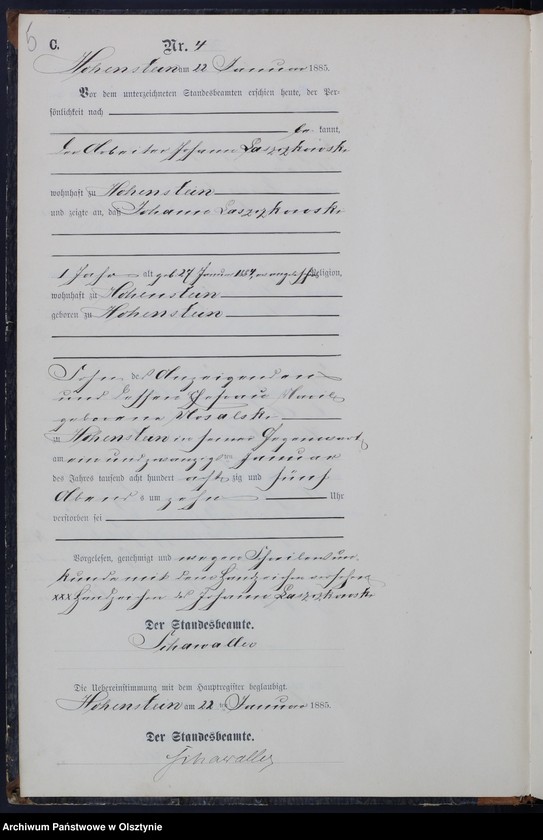 5
C.
Nr. 4
Hohenstein am 22 Januar 1885.
Vor dem unterzeichneten Standesbeamten erschien heute, der Per-
sönlichkeit nach
be kannt,
der Arbeiter Johann
wohnhaft zu Hohenstein
und zeigte an, daß Johann
1 Jahr alt geb 27 Januar 1884, evangelischer Religion,
wohnhaft zu Hohenstein
geboren zu Hohenstein
Sohn des Anzeigenden
und dessen Ehefrau
geborene
zu Hohenstein in seiner Gegenwart
am ein und zwanzigsten Januar
des Jahres tausend acht hundert acht zig und fünf
Abends um zehn Uhr
verstorben sei
Vorgelesen, genehmigt und wegen Schreibensun-
kunde mit dem Handzeichen versehen
xxx Handzeichen des Johann
Der Standesbeamte.
Schawaller
Die Uebereinstimmung mit dem Hauptregister beglaubigt.
Hohenstein am 22 ten Januar 1885.
Der Standesbeamte.
Schawaller
Archiwum Państwowe w Olsztynie